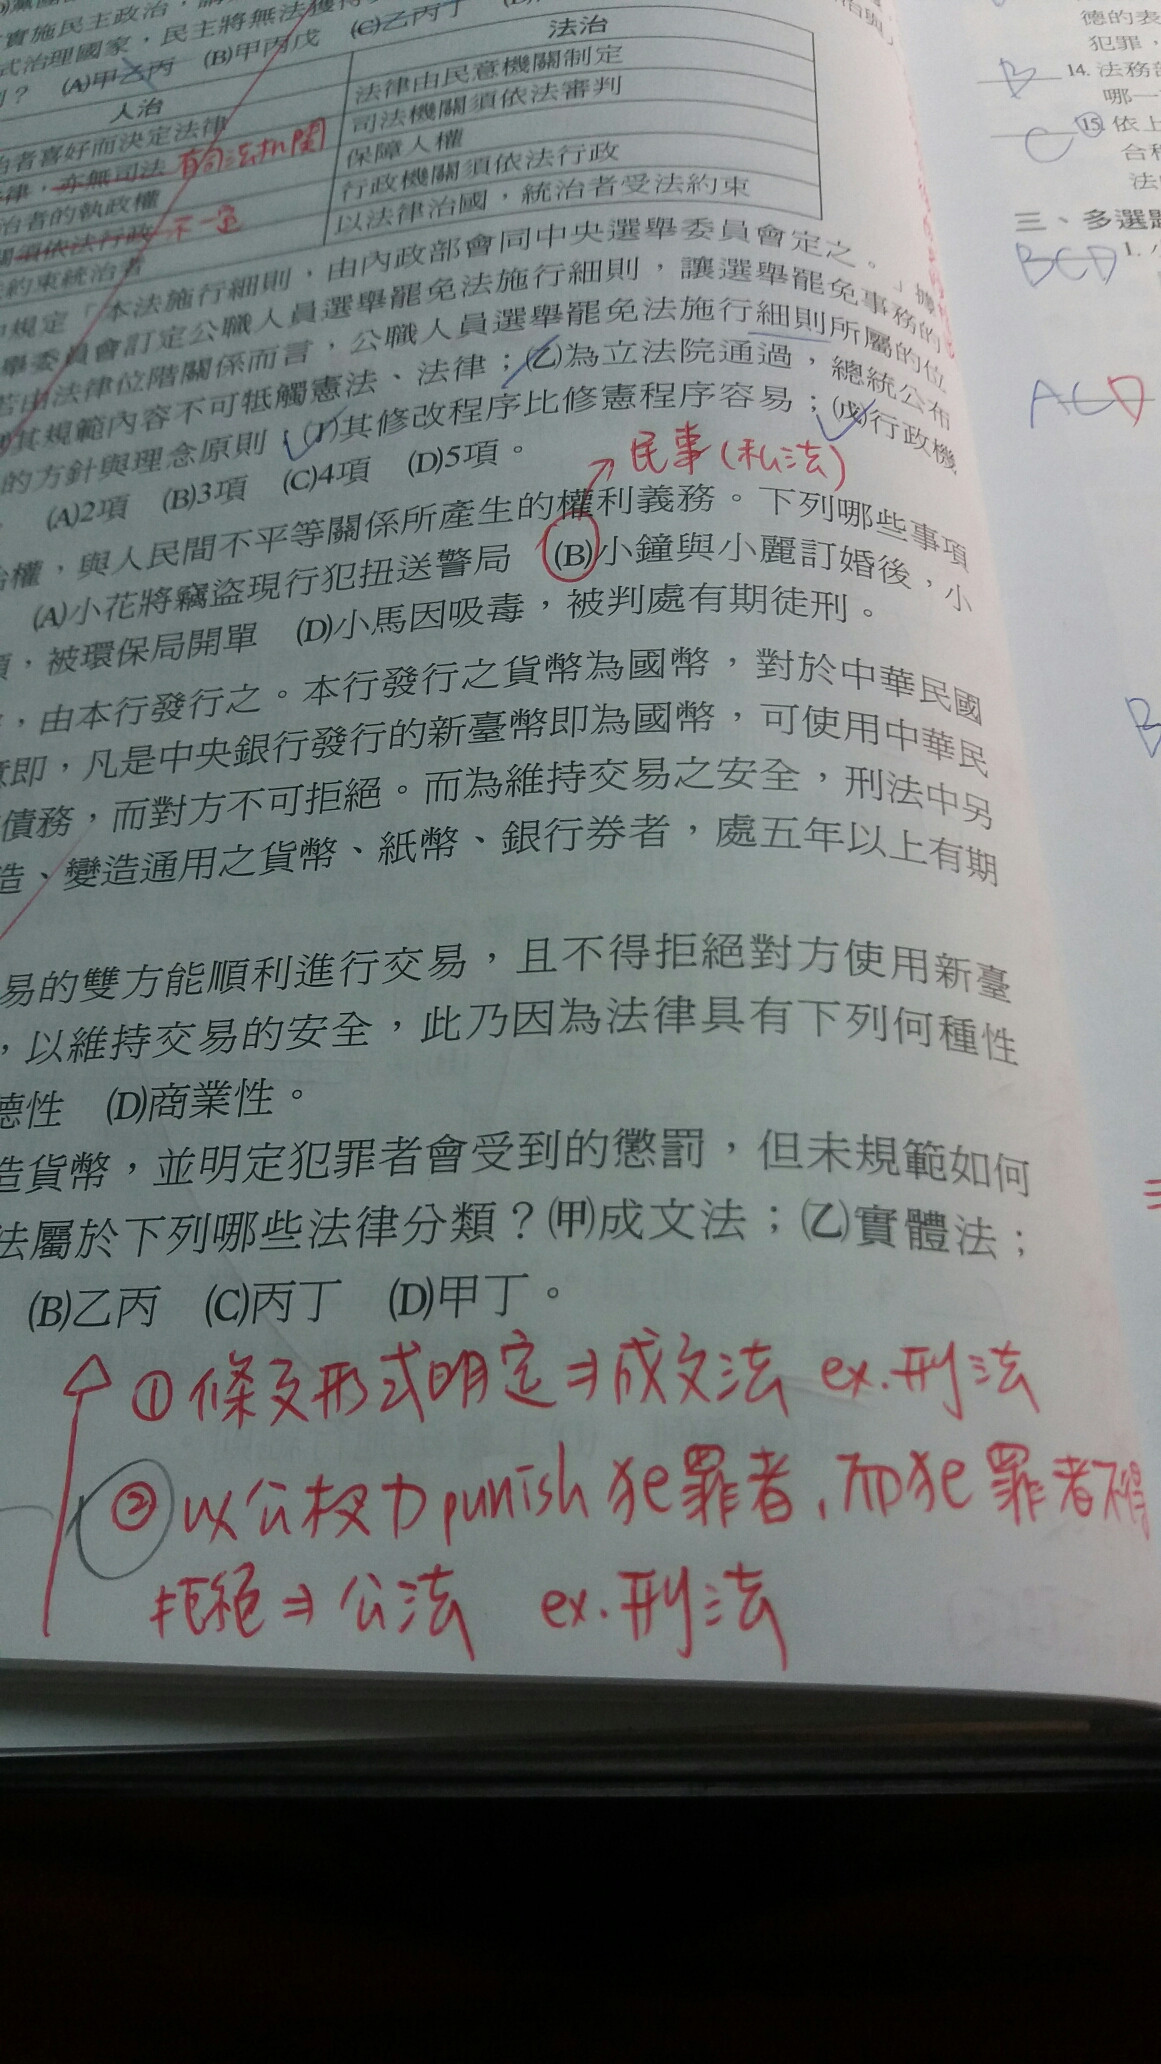 實施民主政治，
式治理國家，民主將無法獲得
？ (A)甲乙丙 (B)甲丙戊 (C)乙丙丁
人治
法治
治者喜好而決定法律
法律由民意機關制定
律，亦無司法 有司法機關
司法機關須依法審判
治者的執政權
保障人權
關須依法行政 不一定
行政機關須依法行政
約束統治者
以法律治國，統治者受法約束
規定「本法施行細則，由內政部會同中央選舉委員會定之。」
舉委員會訂定公職人員選舉罷免法施行細則，讓選舉罷免事務的
若由法律位階關係而言，公職人員選舉罷免法施行細則所屬的位
其規範內容不可牴觸憲法、法律；(乙)為立法院通過，總統公布
的方針與理念原則；(丁)其修改程序比修憲程序容易；(戊)行政機
(A)2項 (B)3項 (C)4項 (D)5項。
民事(私法)
治權，與人民間不平等關係所產生的權利義務。下列哪些事項
(A)小花將竊盜現行犯扭送警局 (B)小鐘與小麗訂婚後，小
，被環保局開單 (D)小馬因吸毒，被判處有期徒刑。
，由本行發行之。本行發行之貨幣為國幣，對於中華民國
意即，凡是中央銀行發行的新臺幣即為國幣，可使用中華民
債務，而對方不可拒絕。而為維持交易之安全，刑法中另
造、變造通用之貨幣、紙幣、銀行券者，處五年以上有期
易的雙方能順利進行交易，且不得拒絕對方使用新臺
，以維持交易的安全，此乃因為法律具有下列何種性
德性 (D)商業性。
造貨幣，並明定犯罪者會受到的懲罰，但未規範如何
法屬於下列哪些法律分類？(甲)成文法；(乙)實體法；
(B)乙丙 (C)丙丁 (D)甲丁。
①條文形式明定⇒成文法 ex.刑法
②以公权力punish犯罪者，而犯罪者不得
拒絕⇒公法 ex.刑法
德的表
犯罪，
B 14. 法務部
哪一
C 15. 依上
合稱
三、多選題
BCD 1.
ACD
B